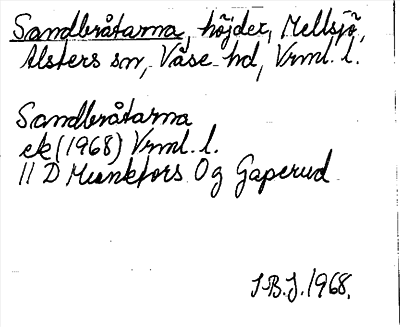 Sandbråtarna, höjder, Mellsjö,
Alsters sn, Väse hd, Vrml. l.
Sandbråtarna
ek (1968) Vrml. l.
11 D Munkfors 0g Gaperud
I.B.J. 1968.